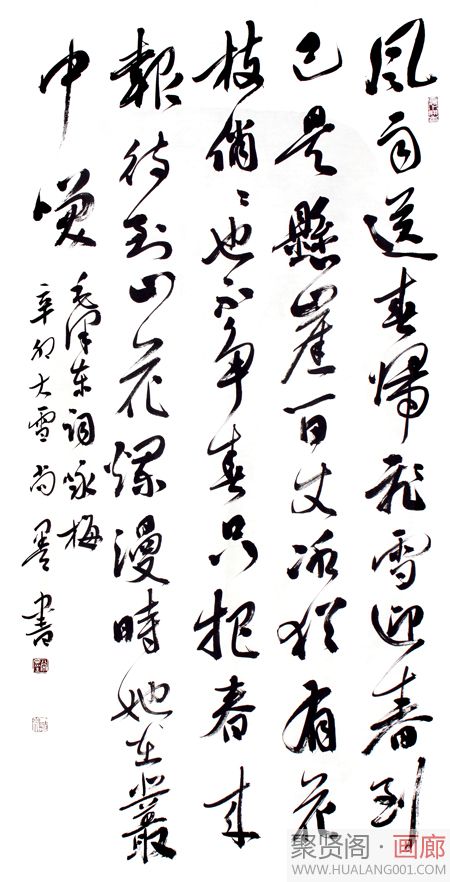 风雨送春歸飛雪迎春到
已是懸崖百丈冰猶有花
枝俏〻也不争春只把春来
報待到山花爛漫時她在叢
中咲
毛泽东詞咏梅
辛卯大雪尚墨書
聚贤阁·画廊
WWW.HUALANG001.COM